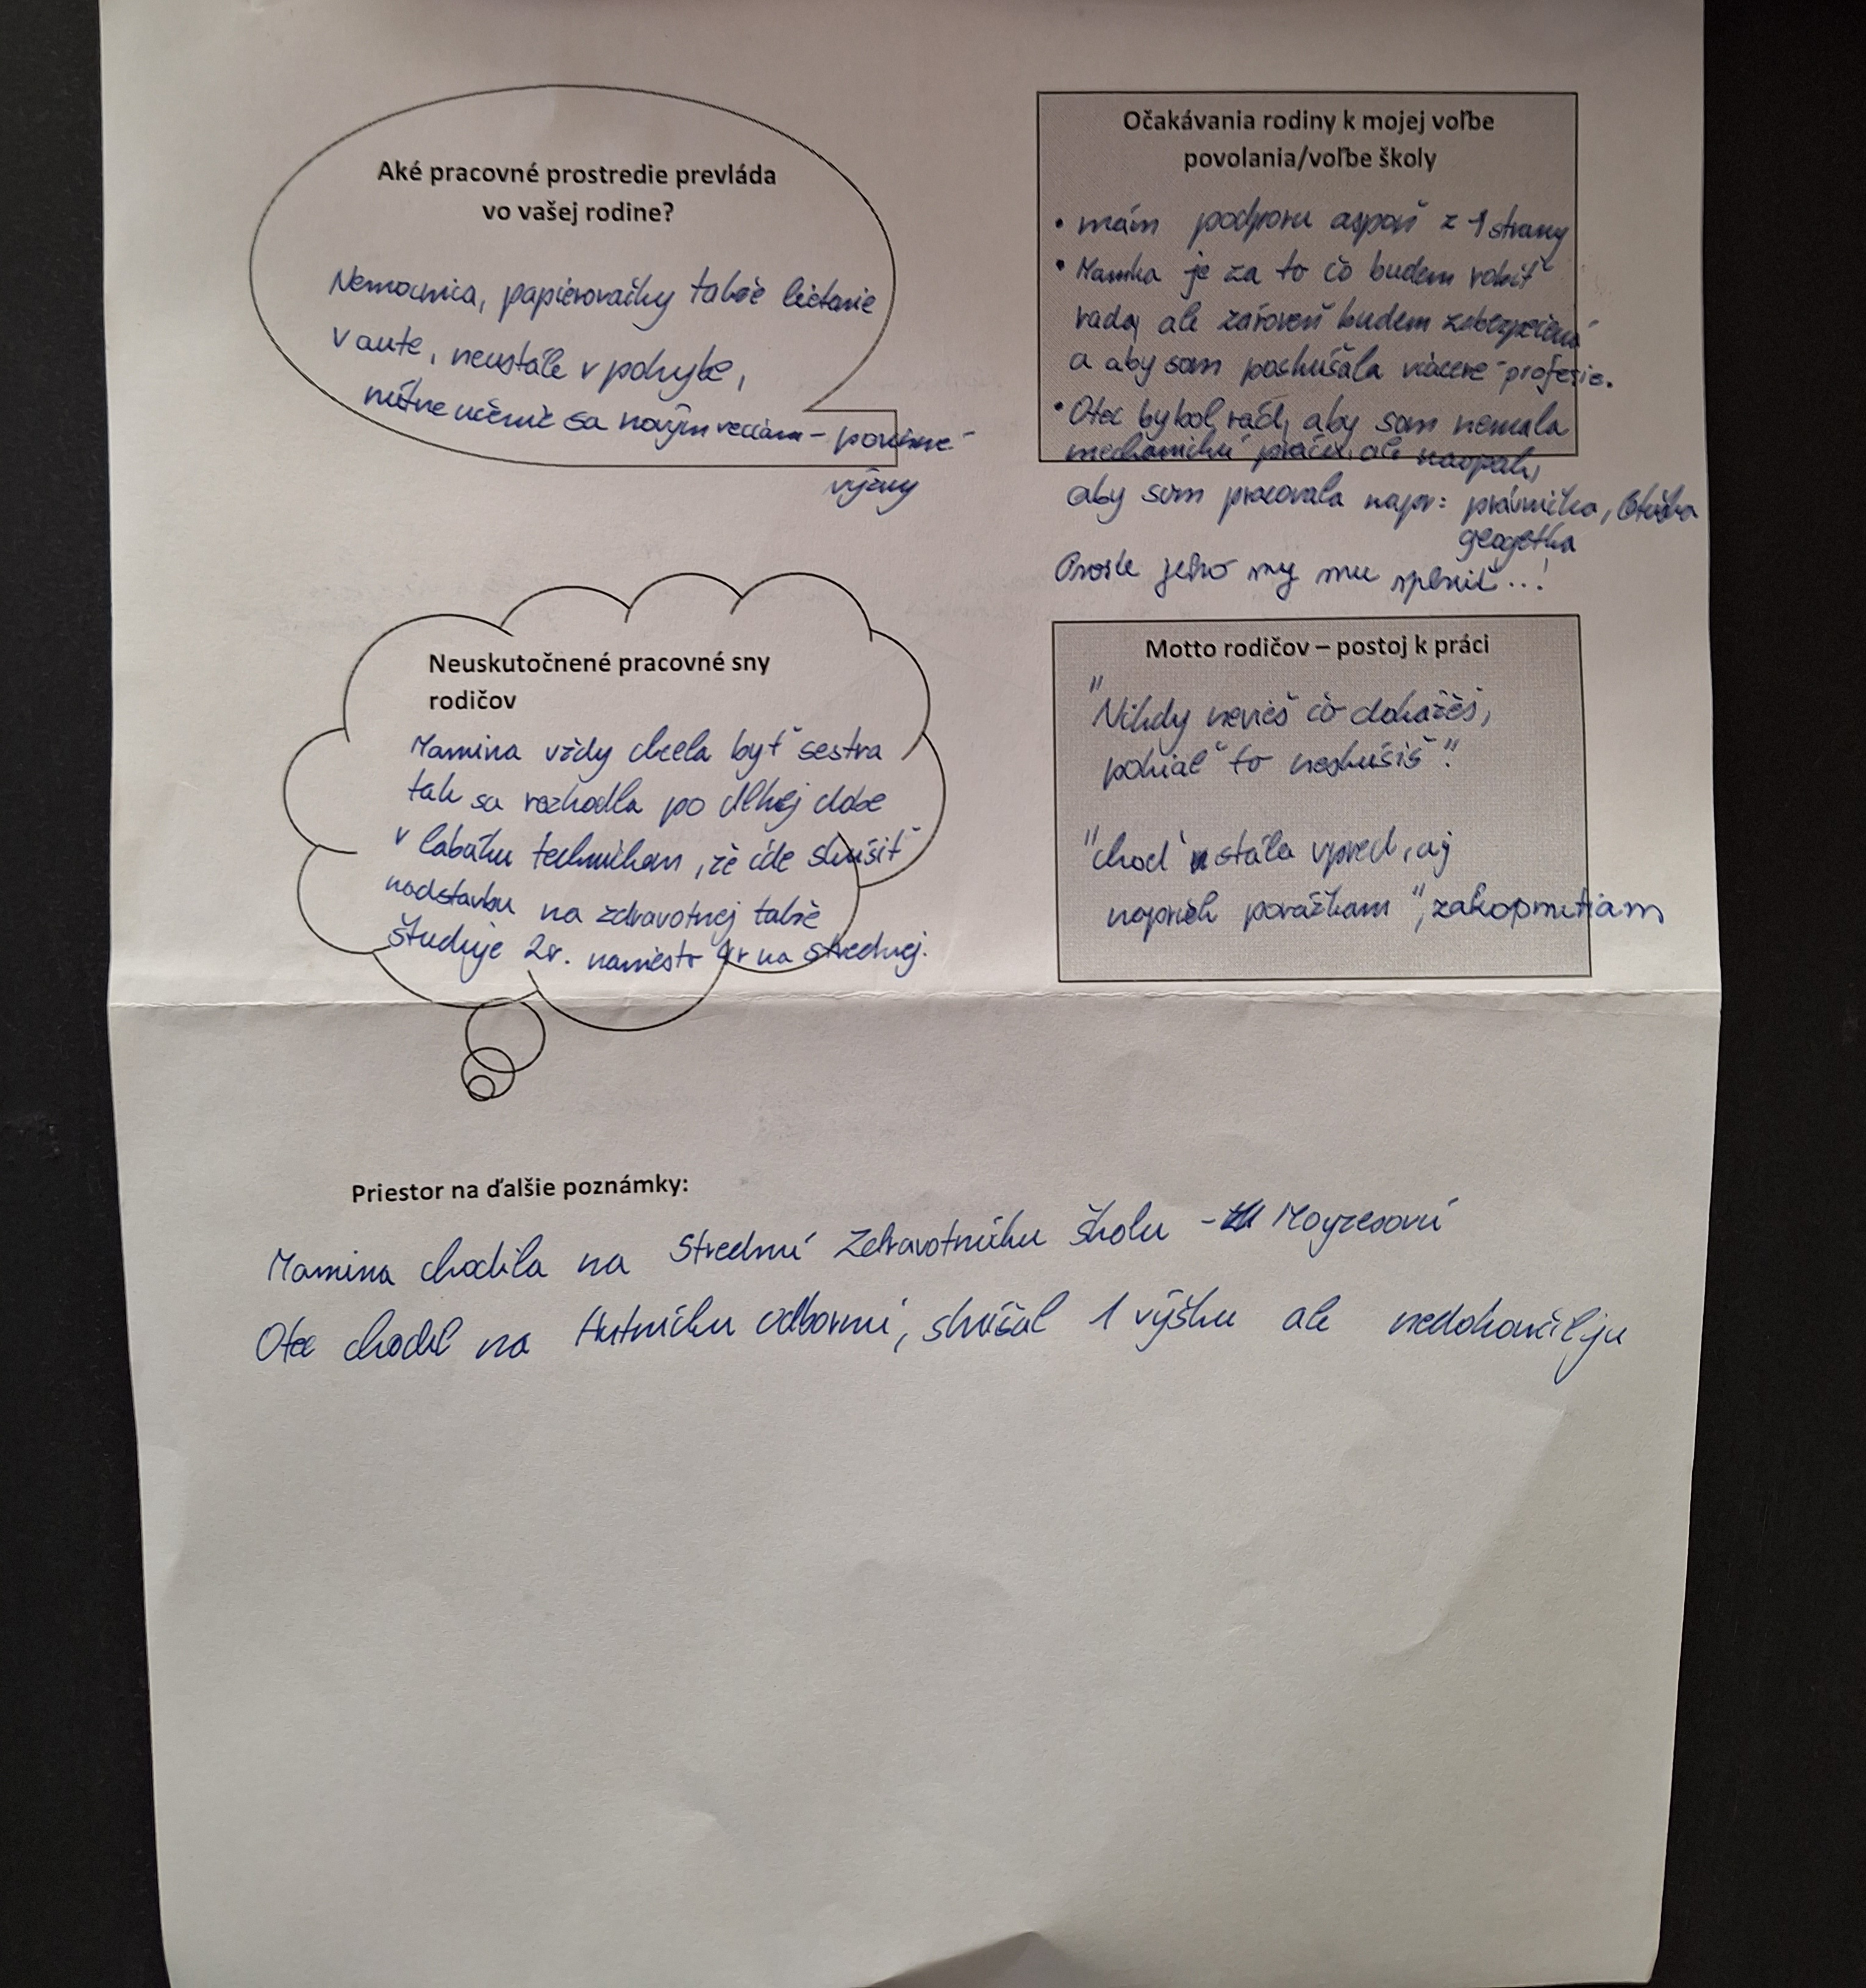 Aké pracovné prostredie prevláda
vo vašej rodine?
Nemocnica, papierovačky takže lietanie
v aute, neustále v pohybe,
nútne učenie sa novým veciam - povinné
výzvy
Očakávania rodiny k mojej voľbe
povolania/voľbe školy
• mám podporu aspoň z 1 strany
• Mamka je za to čo budem robiť
rada, ale zároveň budem zabezpečená
a aby som poskúšala viaceré profesie.
• Otec by bol rád, aby som nemala
mechanickú prácu, ale naopak,
aby som pracovala napr: právnička,
geodetka
Proste jeho my mu splniť..!
Neuskutočnené pracovné sny
rodičov
Mamina vždy chcela byť sestra
tak sa rozhodla po dlhej dobe
v labáku technikom, že ide skúsiť
nadstavbu na zdravotnej takže
študuje 2r. namiesto 4r na strednej.
Motto rodičov – postoj k práci
"Nikdy nevieš čo dokážeš,
pokiaľ to neskúsiš".
"choď stále vpred, aj
napriek porážkam", zakopnutiam
Priestor na ďalšie poznámky:
Mamina chodila na Strednú Zdravotnícku školu - Moyzesovú
Otec chodil na Hutnícku odbornú, skúšal 1 výšku ale nedokončil ju